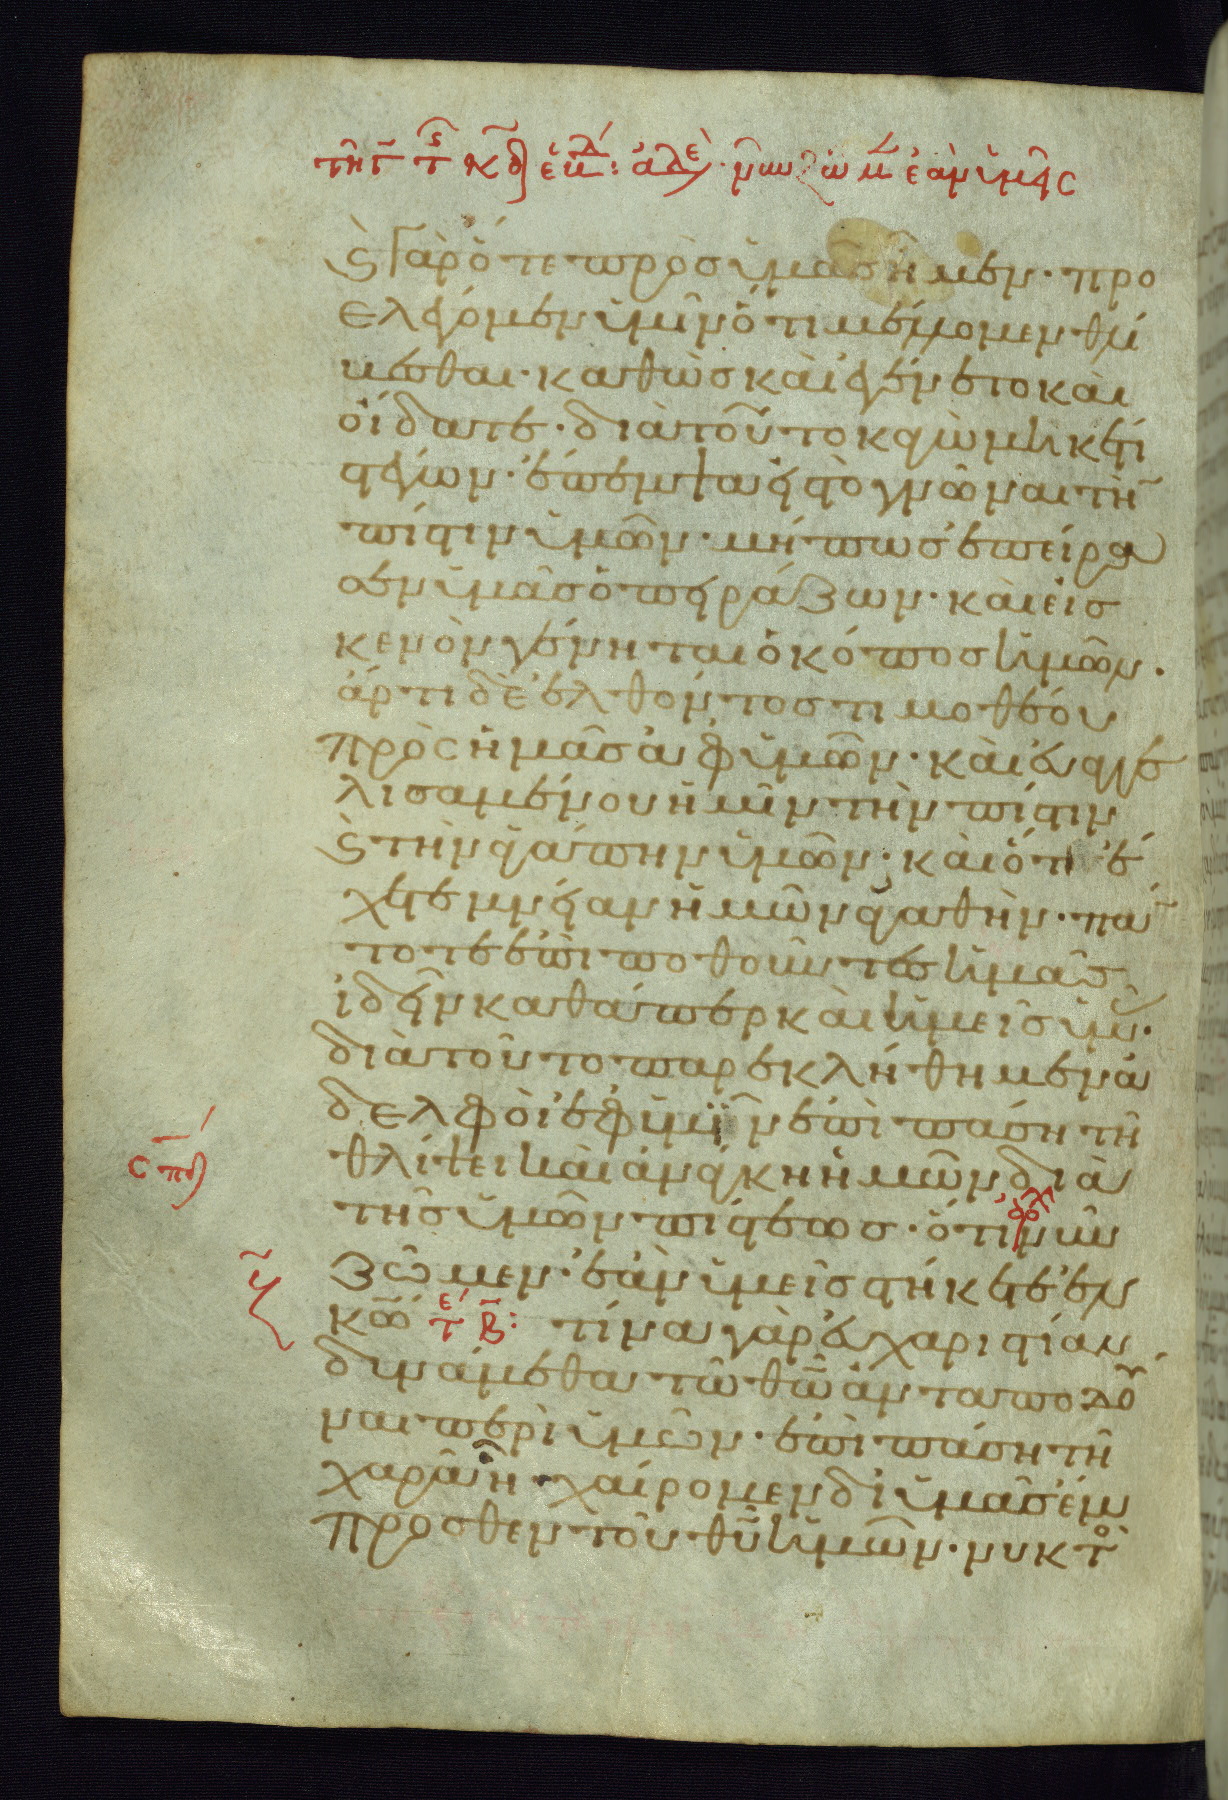 τῇ γ τ̅ς κδ ἑβδ: ἀδελ. νῦν ζῶμ ἐὰν ὑμεῖς
ϛ γὰρ ὅτε πρὸς ὑμᾶς ἦμεν· προ
ελέγομεν ὑμῖν ὅτι μέλλομεν θλί
βεσθαι· καθὼς καὶ ἐγένετο καὶ
οἴδατε· διὰ τοῦτο κἀγὼ μηκέτι
στέγων· ἔπεμψα εἰς τὸ γνῶναι τὴν
πίστιν ὑμῶν· μή πως ἐπείρα
σεν ὑμᾶς ὁ πειράζων· καὶ εἰς
κενὸν γένηται ὁ κόπος ὑμῶν·
ἄρτι δὲ ἐλθόντος τιμοθέου
πρὸς ἡμᾶς ἀφ ὑμῶν· καὶ εὐαγγε
λισαμένου ἡμῖν τὴν πίστιν
ϛ τὴν ἀγάπην ὑμῶν· καὶ ὅτι ἔ
χετε μνείαν ἡμῶν ἀγαθὴν· πάν
τοτε ἐπιποθοῦντες ὑμᾶς
ἰδεῖν καθάπερ καὶ ὑμεῖς ὑμῖν·
διὰ τοῦτο παρεκλήθημεν ἀ
δελφοὶ ἐφ ὑμῖν ἐπὶ πάσῃ τῇ
θλίψει καὶ ἀνάγκῃ ἡμῶν διὰ
τῆς ὑμῶν πίστεως· ὅτι νῦν
ζῶμεν· ἐὰν ὑμεῖς στήκετε ἐν
κω τ̅ε β: τίνα γὰρ εὐχαριστίαν
δυνάμεθα τῶ θω ἀνταποδοῦ
ναι περὶ ὑμῶν· ἐπὶ πάσῃ τῇ
χαρᾶ ἧ· χαίρομεν δι ὑμᾶς ἔμ
προσθεν τοῦ θυ ἡμῶν· νυκτὸ